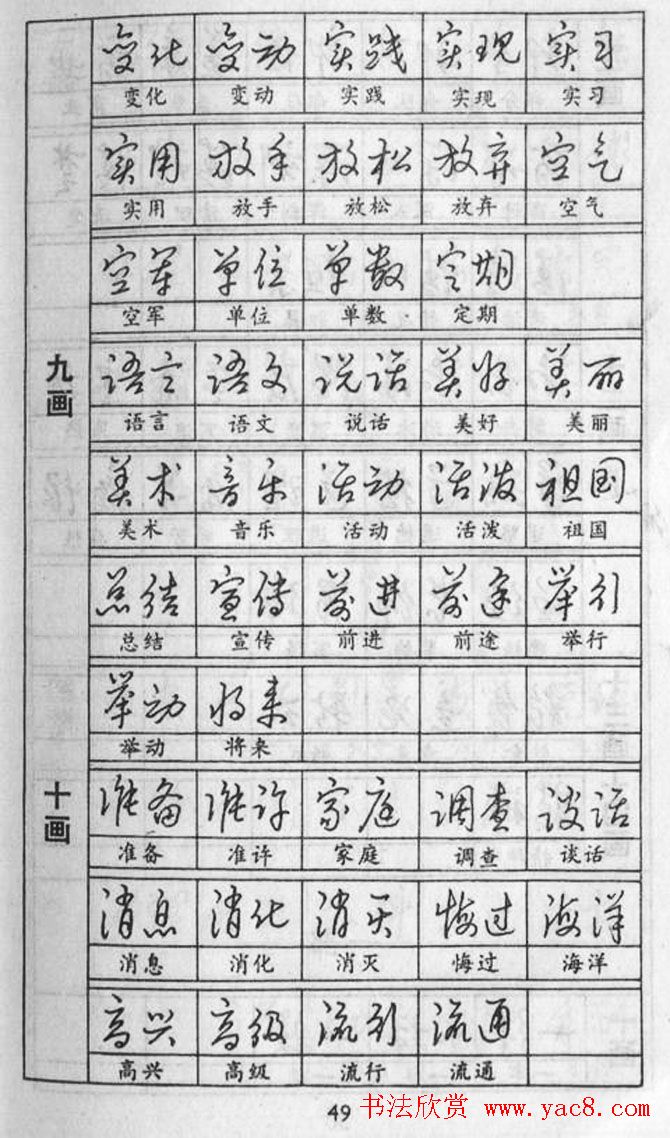 变化 变动 实践 实现 实习
变化 变动 实践 实现 实习
实用 放手 放松 放弃 空气
实用 放手 放松 放弃 空气
空军 单位 单数 定期
空军 单位 单数 定期
九画
语言 语文 说话 美好 美丽
语言 语文 说话 美好 美丽
美术 音乐 活动 活泼 祖国
美术 音乐 活动 活泼 祖国
总结 宣传 前进 前途 举行
总结 宣传 前进 前途 举行
举动 将来
举动 将来
十画
准备 准许 家庭 调查 谈话
准备 准许 家庭 调查 谈话
消息 消化 消灭 悔过 海洋
消息 消化 消灭 悔过 海洋
高兴 高级 流行 流通
高兴 高级 流行 流通
49
书法欣赏 www.yac8.com